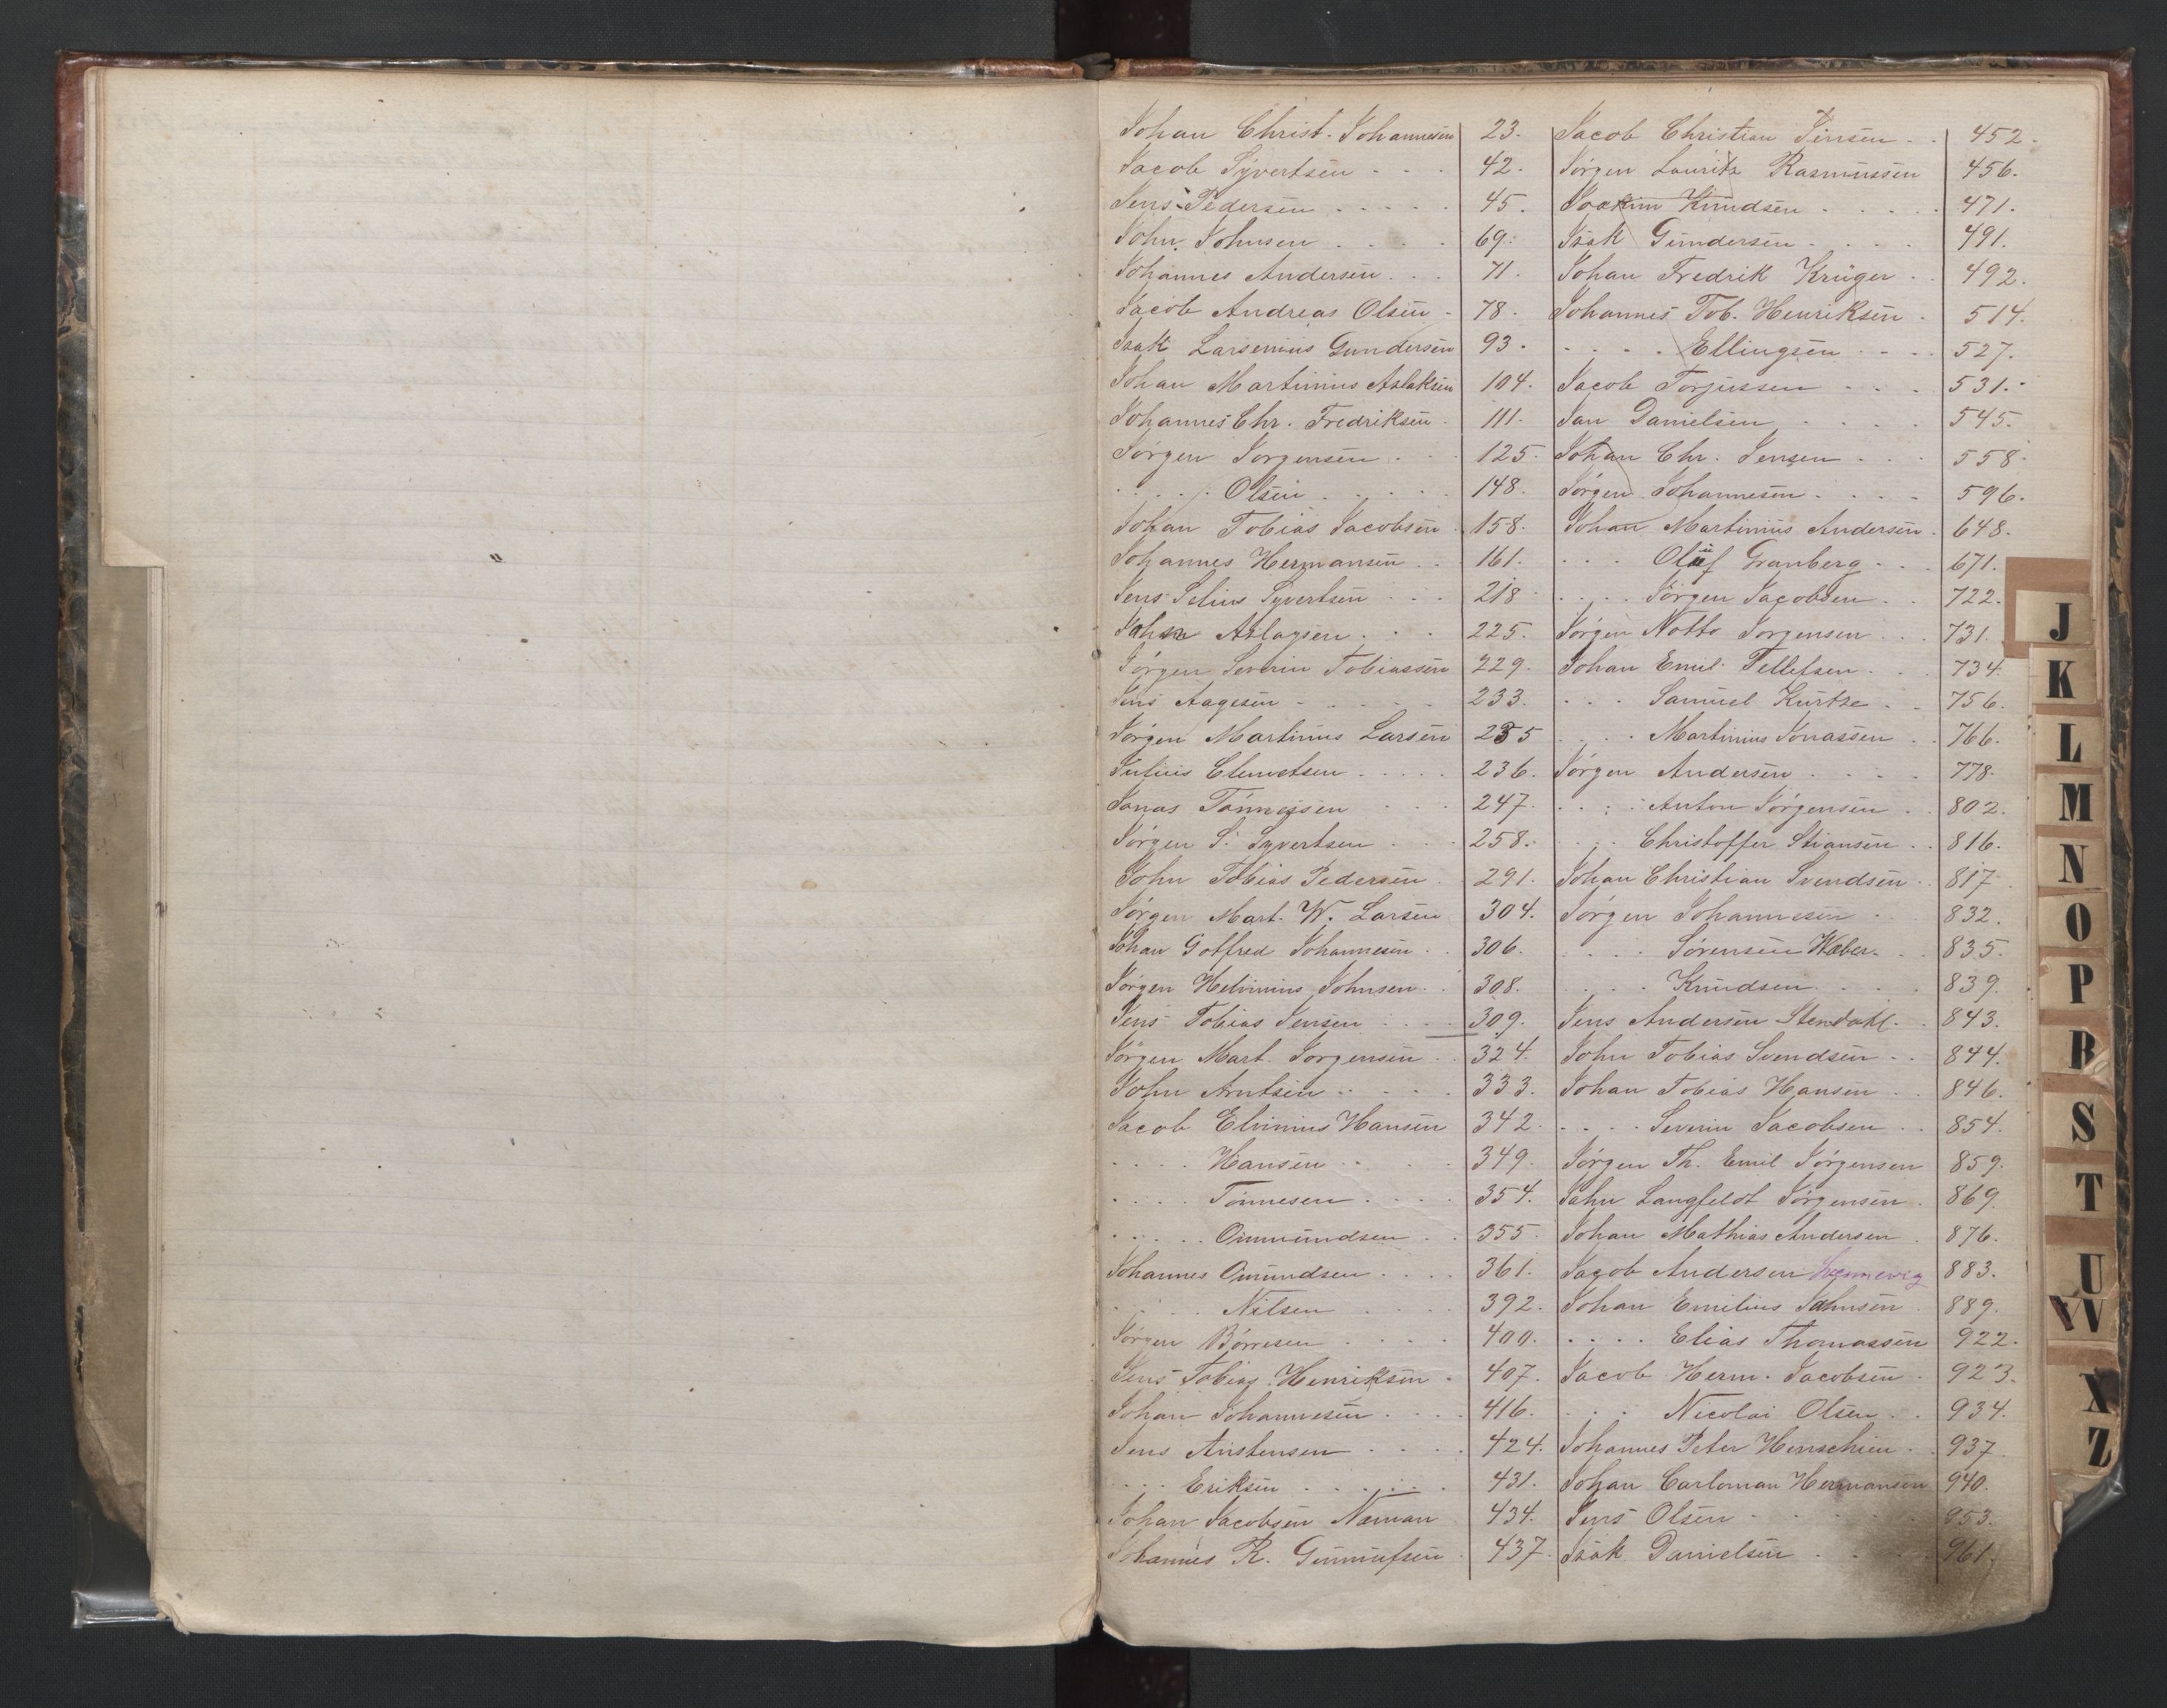 Johan Christ. Johannesen 23.
Jacob Syvertsen - - - 42.
Jens Pedersen - - - - - 45.
John Johnsen . . . . 69.
Johannes Andersen . . . 71.
Jacob Andreas Olsen - 78.
Isak Larsenius Gundersen 93.
Johan Martinius Aslaksen 104.
Johannes Chr. Fredriksen . 111.
Jørgen Jørgensen . . . 125.
. . . . . Olsen . . . . . 148.
Johan Tobias Jacobsen . 158.
Johannes Hermansen . . . 161.
Jens Selius Syvertsen . . . 218
John Aslagsen . . . 225.
Jørgen Severin Tobiassen 229.
Jens Aagesen - . . . . 233.
Jørgen Martinus Larsen 235
Julius Clemetsen . . . . . 236.
Jonas Tønnessen . . . 247.
Jørgen S. Syvertsen . . . 258.
John Tobias Pedersen . 291.
Jørgen Mart. W. Larsen 304.
Johan Gotfred Johannesen . . 306.
Jørgen Helvinius Johnsen . . 308.
Jens Tobias Jensen . . . . 309.
Jørgen Mart. Jørgensen . . 324.
John Arntsen . . . . . 333.
Jacob Elvinius Hansen 342.
. . . . Hansen . . . . 349.
. . . . Tønnesen . . . . 354.
. . . . . Ommundsen . . 355.
Johannes Omundsen . . . . 361.
. . . . Nilsen . . . . 392.
Jørgen Børresen . . . . 400.
Jens Tobias Henriksen . 407.
Johan Johannesen . . . . 416.
Jens Austensen . . . . 424.
. . . Eriksen . . . . . . 431.
Johan Jacobsen Næman 434.
Johannes R. Gunnufsen . 437.
Jacob Christian Jensen . . 452.
Jørgen Lauritz Rasmussen 456.
Joakim Knudsen . . . . . 471.
Isak Gundersen . . . . 491.
Johan Fredrik Krüger . . 492.
Johannes Tob. Henriksen . 514.
. . . . Ellingsen . . . . 527.
Jacob Torjussen . . . 531.
Jan Danielsen . . . . 545.
Johan Chr. Jensen . . . 558.
Jørgen Johannesen . . . . 596.
Johan Martinius Andersen . 648.
. . . Oluf Granberg . . . 671.
. . . . Jørgen Jacobsen . . 722.
Jørgen Notto Jørgensen . . . 731.
Johan Emil Tellefsen . . . 734.
. . . Samuel Kurtze . . 756.
. . . . Martinius Jonassen . . 766.
Jørgen Andersen . . . . . 778.
. . . . Anton Jørgensen . . 802.
. . . Christoffer Stiansen . . 816.
Johan Christian Svendsen . . 817
Jørgen Johannesen . . 832.
. . . . Sørensen Weber . . 835.
. . . . Knudsen . . . . 839.
Jens Andersen Stendahl . . 843.
John Tobias Svendsen . . 844.
Johan Tobias Hansen . . 846.
. . . . Severin Jacobsen . . 854.
Jørgen Th. Emil Jørgensen 859.
John Langfeldt Jørgensen . 869.
Johan Mathias Andersen . 876.
Jacob Andersen Svennevig 883.
Johan Emilius Johnsen . 889.
. . . . Elias Thomassen 922.
Jacob Herm. Jacobsen . 923.
. . . Nicolai Olsen . . 934.
Johannes Peter Henschien . . 937
Johan Carloman Hermansen 940.
Jens Olsen . . . . . . 953.
Isak Danielsen . . . . 961.
J
K
L
M
N
O
P
R
S
T
U
W
X
Z